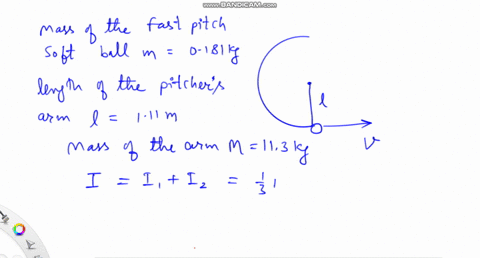 www.BANDICAM.com
Mass of the fast pitch
Soft ball m = 0.181 kg
length of the pitcher's
arm l = 1.11 m
l
V
Mass of the arm M = 11.3 kg
I = I₁ + I₂ = 1/3